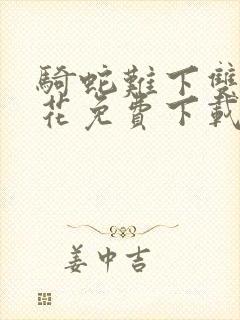 騎蛇難下雙
花免費下載
姜中吉